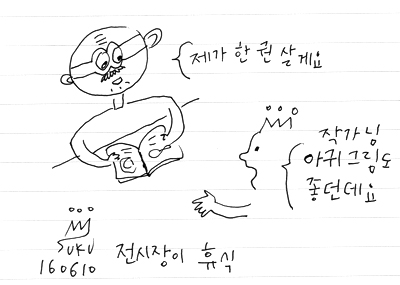 제가 한 권 살게요
작가님
아귀 그림도
좋던데요
SUKU
160610 전시장이 휴식